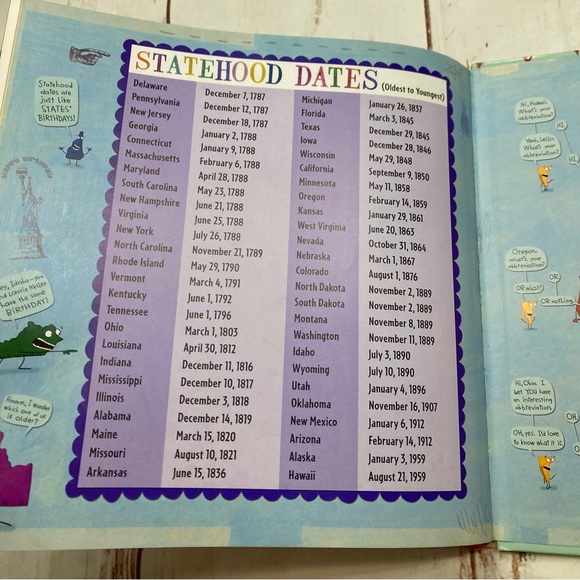 STATEHOOD DATES (Oldest to Youngest)
Delaware December 7, 1787
Pennsylvania December 12, 1787
New Jersey December 18, 1787
Georgia January 2, 1788
Connecticut January 9, 1788
Massachusetts February 6, 1788
Maryland April 28, 1788
South Carolina May 23, 1788
New Hampshire June 21, 1788
Virginia June 25, 1788
New York July 26, 1788
North Carolina November 21, 1789
Rhode Island May 29, 1790
Vermont March 4, 1791
Kentucky June 1, 1792
Tennessee June 1, 1796
Ohio March 1, 1803
Louisiana April 30, 1812
Indiana December 11, 1816
Mississippi December 10, 1817
Illinois December 3, 1818
Alabama December 14, 1819
Maine March 15, 1820
Missouri August 10, 1821
Arkansas June 15, 1836
Michigan January 26, 1837
Florida March 3, 1845
Texas December 29, 1845
Iowa December 28, 1846
Wisconsin May 29, 1848
California September 9, 1850
Minnesota May 11, 1858
Oregon February 14, 1859
Kansas January 29, 1861
West Virginia June 20, 1863
Nevada October 31, 1864
Nebraska March 1, 1867
Colorado August 1, 1876
North Dakota November 2, 1889
South Dakota November 2, 1889
Montana November 8, 1889
Washington November 11, 1889
Idaho July 3, 1890
Wyoming July 10, 1890
Utah January 4, 1896
Oklahoma November 16, 1907
New Mexico January 6, 1912
Arizona February 14, 1912
Alaska January 3, 1959
Hawaii August 21, 1959
Statehood
dates are
just like
STATES'
BIRTHDAYS!
Idaho—you
and Laurie Keller
have the same
BIRTHDAY!
Hmmm, I wonder
which one of us
is older?
Hi, Hawaii.
What's your
abbreviation?
HI.
Yeah, hello.
What's your
abbreviation?
Oregon,
what's your
abbreviation?
OR
OR what?
OR
OR nothing.
Hi, Ohio. I
bet YOU have
an interesting
abbreviation.
OH
OH, yes. I'd love
to know what it is.